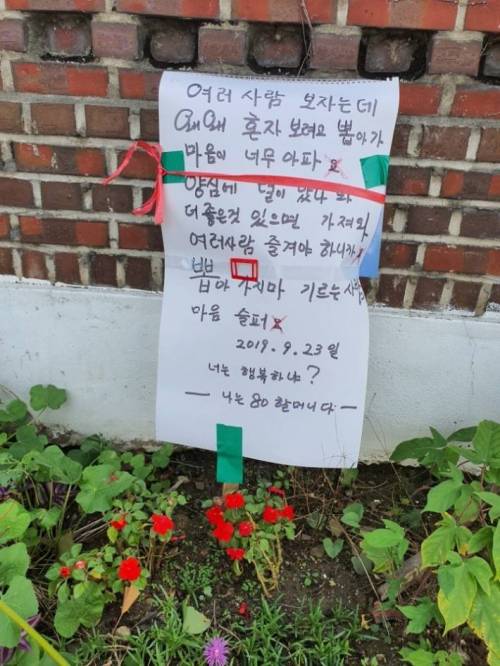 여러사람 보자는데
왜왜 혼자 보려고 뽑아가
마음이 너무 아파요
양심에 털이 났나 봐
더 좋은것 있으면 가져와
여러사람 즐겨야 하니까
뽑아 가지마 기르는 사람
마음 슬퍼요
2019.9.23일
너는 행복하냐?
— 나는 80 할머니다 —